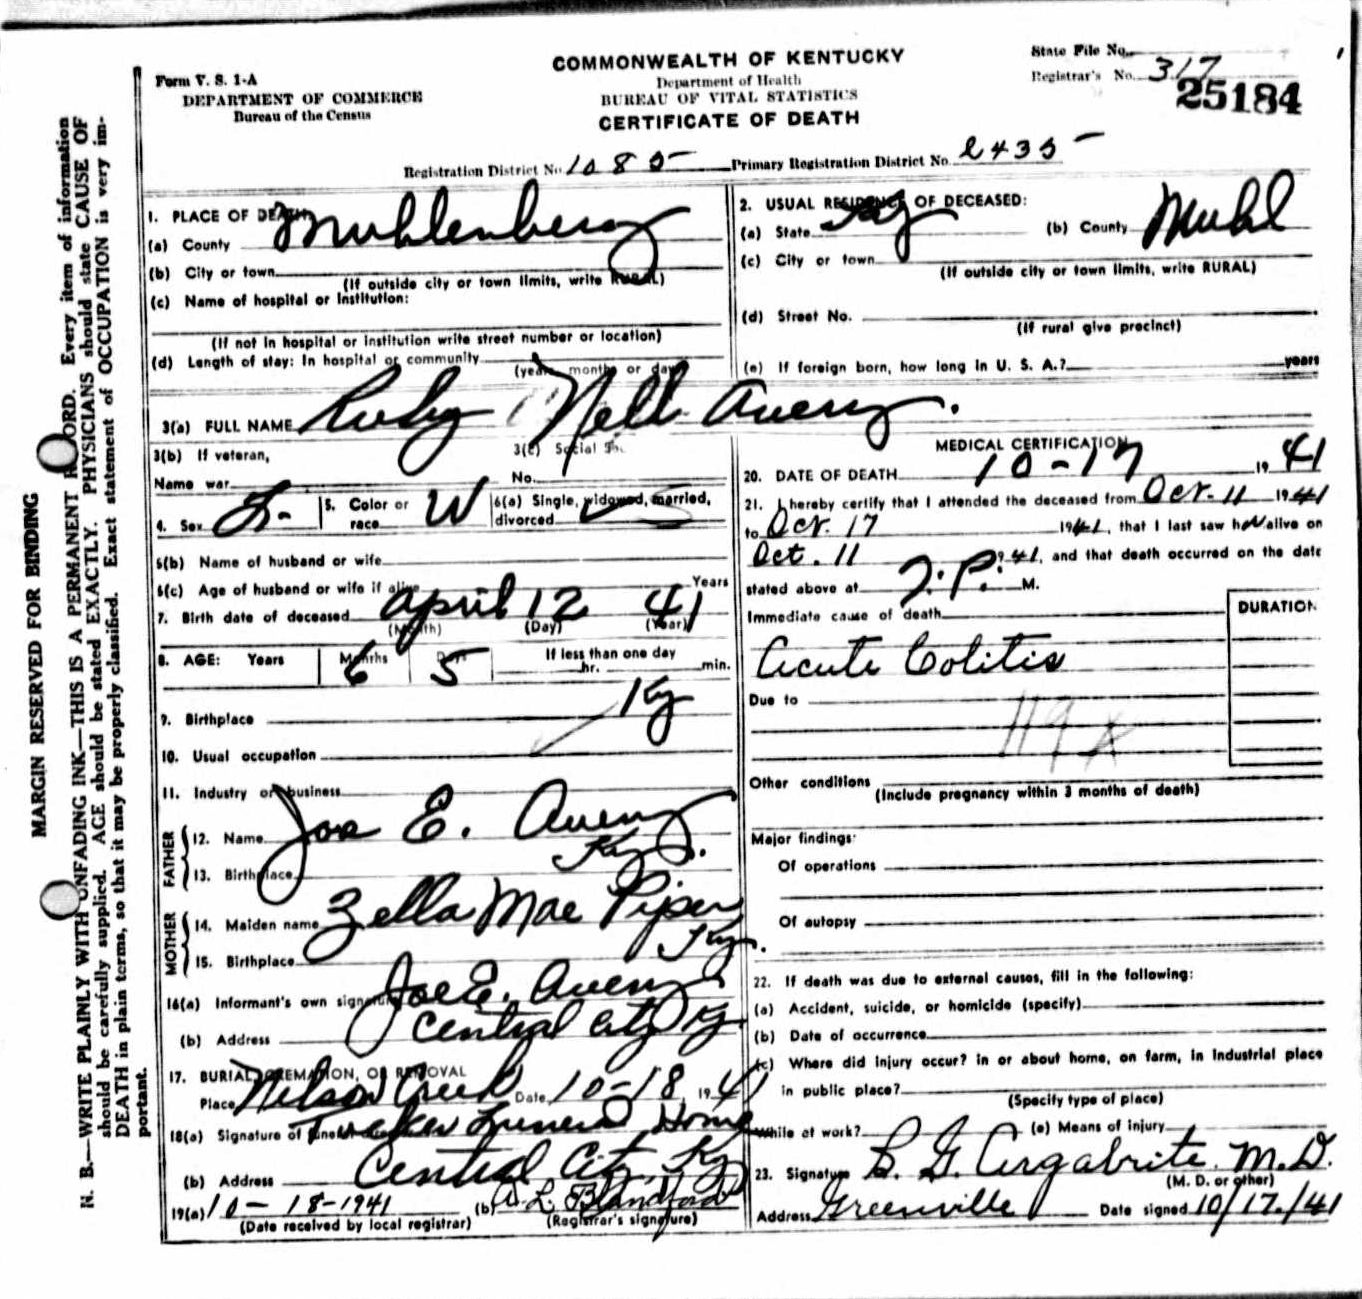 COMMONWEALTH OF KENTUCKY
Department of Health
BUREAU OF VITAL STATISTICS
CERTIFICATE OF DEATH
Form V. S. 1-A
DEPARTMENT OF COMMERCE
Bureau of the Census
State File No.
Registrar's No. 317
25184
Registration District No. 1085 Primary Registration District No. 2435
MARGIN RESERVED FOR BINDING
N. B.—WRITE PLAINLY WITH UNFADING INK—THIS IS A PERMANENT RECORD. Every item of information
should be carefully supplied. AGE should be stated EXACTLY. PHYSICIANS should state CAUSE OF
DEATH in plain terms, so that it may be properly classified. Exact statement of OCCUPATION is very im-
portant.
1. PLACE OF DEATH
(a) County Muhlenberg
(b) City or town
(If outside city or town limits, write RURAL)
(c) Name of hospital or Institution:
(If not in hospital or institution write street number or location)
(d) Length of stay: In hospital or community
(years months or days)
2. USUAL RESIDENCE OF DECEASED:
(a) State Ky (b) County Muhl
(c) City or town
(If outside city or town limits, write RURAL)
(d) Street No.
(If rural give precinct)
(e) If foreign born, how long in U. S. A.? years
3(a) FULL NAME Ruby Nell Avery.
3(b) If veteran,
Name war
3(c) Social
No.
4. Sex F. 5. Color or race W 6(a) Single, widowed, married, divorced S
6(b) Name of husband or wife
6(c) Age of husband or wife if alive Years
7. Birth date of deceased April 12 41
(Month) (Day) (Year)
8. AGE: Years Months 6 Days 5 If less than one day
hr. min.
9. Birthplace Ky
10. Usual occupation
11. Industry or business
FATHER
12. Name Joe E. Avery
13. Birthplace Ky.
MOTHER
14. Maiden name Zella Mae Piper
15. Birthplace Ky.
16(a) Informant's own signature Joe E. Avery
(b) Address Central City Ky
17. BURIAL, CREMATION, OR REMOVAL
Place Nelson Creek Date 10-18 1941
18(a) Signature of funeral Tucker Funeral Home
(b) Address Central City, Ky
19(a) 10-18-1941 (b) A L Blandford
(Date received by local registrar) (Registrar's signature)
MEDICAL CERTIFICATION
20. DATE OF DEATH 10-17 1941
21. I hereby certify that I attended the deceased from Oct. 11 1941
to Oct. 17 1941, that I last saw her alive on
Oct. 11 1941, and that death occurred on the date
stated above at P. M.
Immediate cause of death DURATION
Acute Colitis
Due to
119
Other conditions
(Include pregnancy within 3 months of death)
Major findings:
Of operations
Of autopsy
22. If death was due to external causes, fill in the following:
(a) Accident, suicide, or homicide (specify)
(b) Date of occurrence
(c) Where did injury occur? in or about home, on farm, in industrial place
in public place?
(Specify type of place)
While at work? (e) Means of injury
23. Signature G. Argabrite. M.D.
(M. D. or other)
Address Greenville Date signed 10/17/41